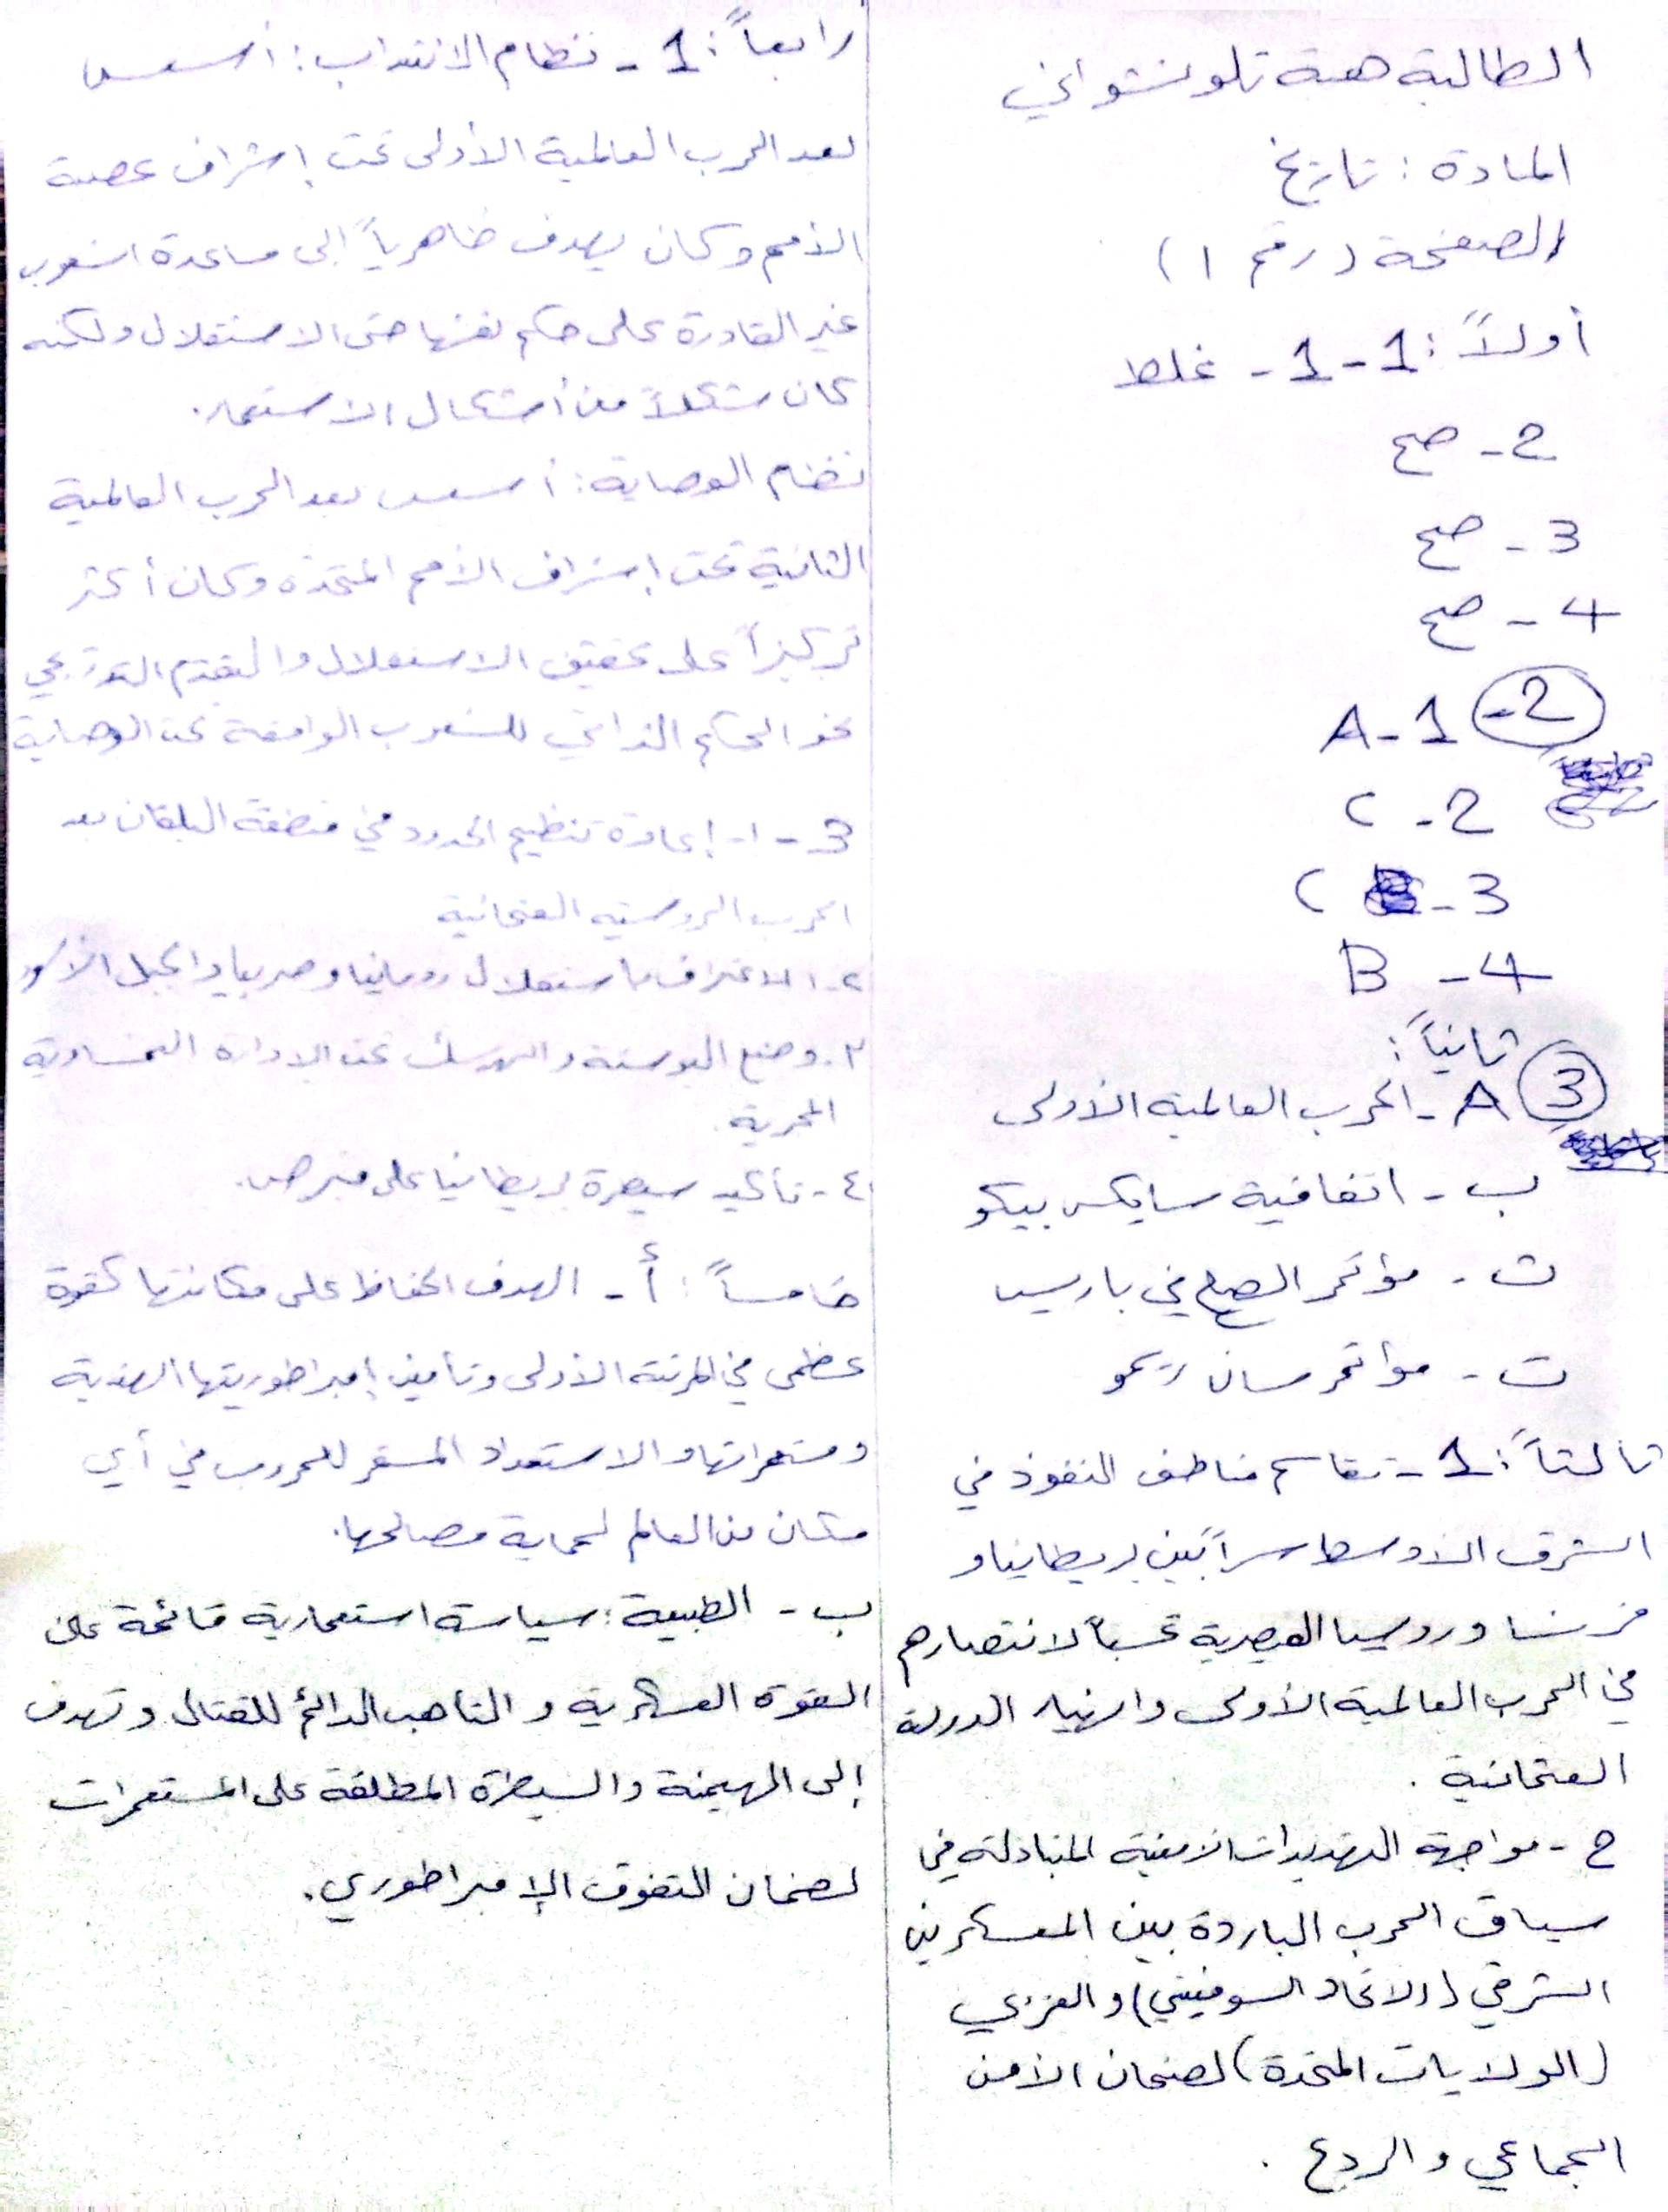 الطالبة هبة تلو نشواتي
المادة : تاريخ
الصفحة (رقم ١)
أولاً : 1 - 1 - غلط
2 - صح
3 - صح
4 - صح
2 - 1 - A
2 - C
3 - C
4 - B
ثانياً :
3 A - الحرب العالمية الأولى
ب - اتفاقية سايكس بيكو
ت - مؤتمر الصلح في باريس
ث - مؤاتمر سان ريمو
ثالثاً : 1 - تقاسم مناطق النفوذ في
الشرق الاوسط سراً بين بريطانيا و
فرنسا وروسيا القيصرية تحسباً لانتصارهم
في الحرب العالمية الأولى وانهيار الدولة
العثمانية .
ج - مواجهة التهديدات الامنية المتبادلة في
سياق الحرب الباردة بين المعسكرين
الشرقي (الاتحاد السوفيتي) والغربي
(الولايات المتحدة) لضمان الامن
الجماعي والردع .
رابعاً : 1 - نظام الانتداب : أسس
بعد الحرب العالمية الأولى تحت إشراف عصبة
الأمم وكان يهدف ظاهرياً إلى مساعدة الشعوب
غير القادرة على حكم نفسها حتى الاستقلال ولكنه
كان شكلاً من أشكال الاستعمار.
نظام الوصاية : أسس بعد الحرب العالمية
الثانية تحت إشراف الأمم المتحده وكان أكثر
تركيزاً على تحقيق الاستقلال والتقدم التدريجي
نحو الحكم الذاتي للشعوب الواقعة تحت الوصاية
3 - ١ - إعادة تنظيم الحدود في منطقة البلقان بعد
الحرب الروسيه العثمانية
٢ - الاعتراف باستقلال رومانيا وصربيا والجبل الأسود
٣ . وضع البوسنة والهرسك تحت الإدارة النمساوية
المجرية .
٤ - تأكيد سيطرة بريطانيا على قبرص .
خامساً : أ - الهدف الحفاظ على مكانتها كقوة
عظمى في المرتبة الأولى وتأمين إمبراطوريتها الهندية
ومستعمراتها والاستعداد المستمر للحروب في أي
مكان من العالم لحماية مصالحها.
ب - الطبيعة : سياسة استعمارية قائمة على
القوة العسكرية والتاهب الدائم للقتال وتهدف
إلى الهيمنة والسيطرة المطلقة على المستعمرات
لضمان التفوق الإمبراطوري .